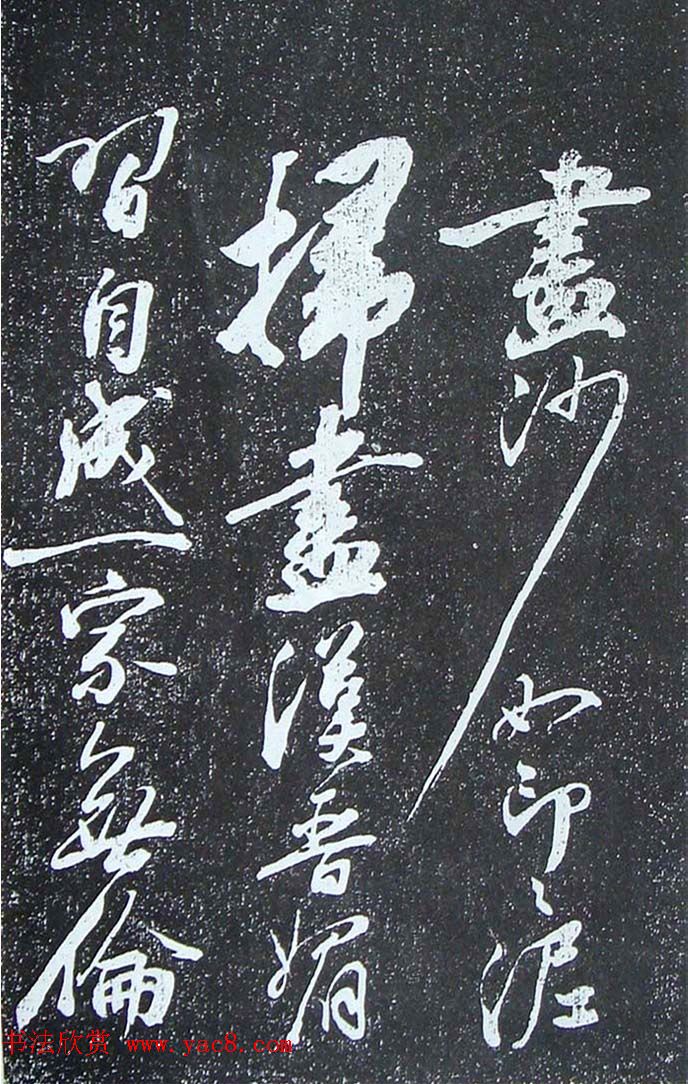 畫沙如印泥
掃盡漢晉媚
習自成一家無倫
书法欣赏 www.yac8.com